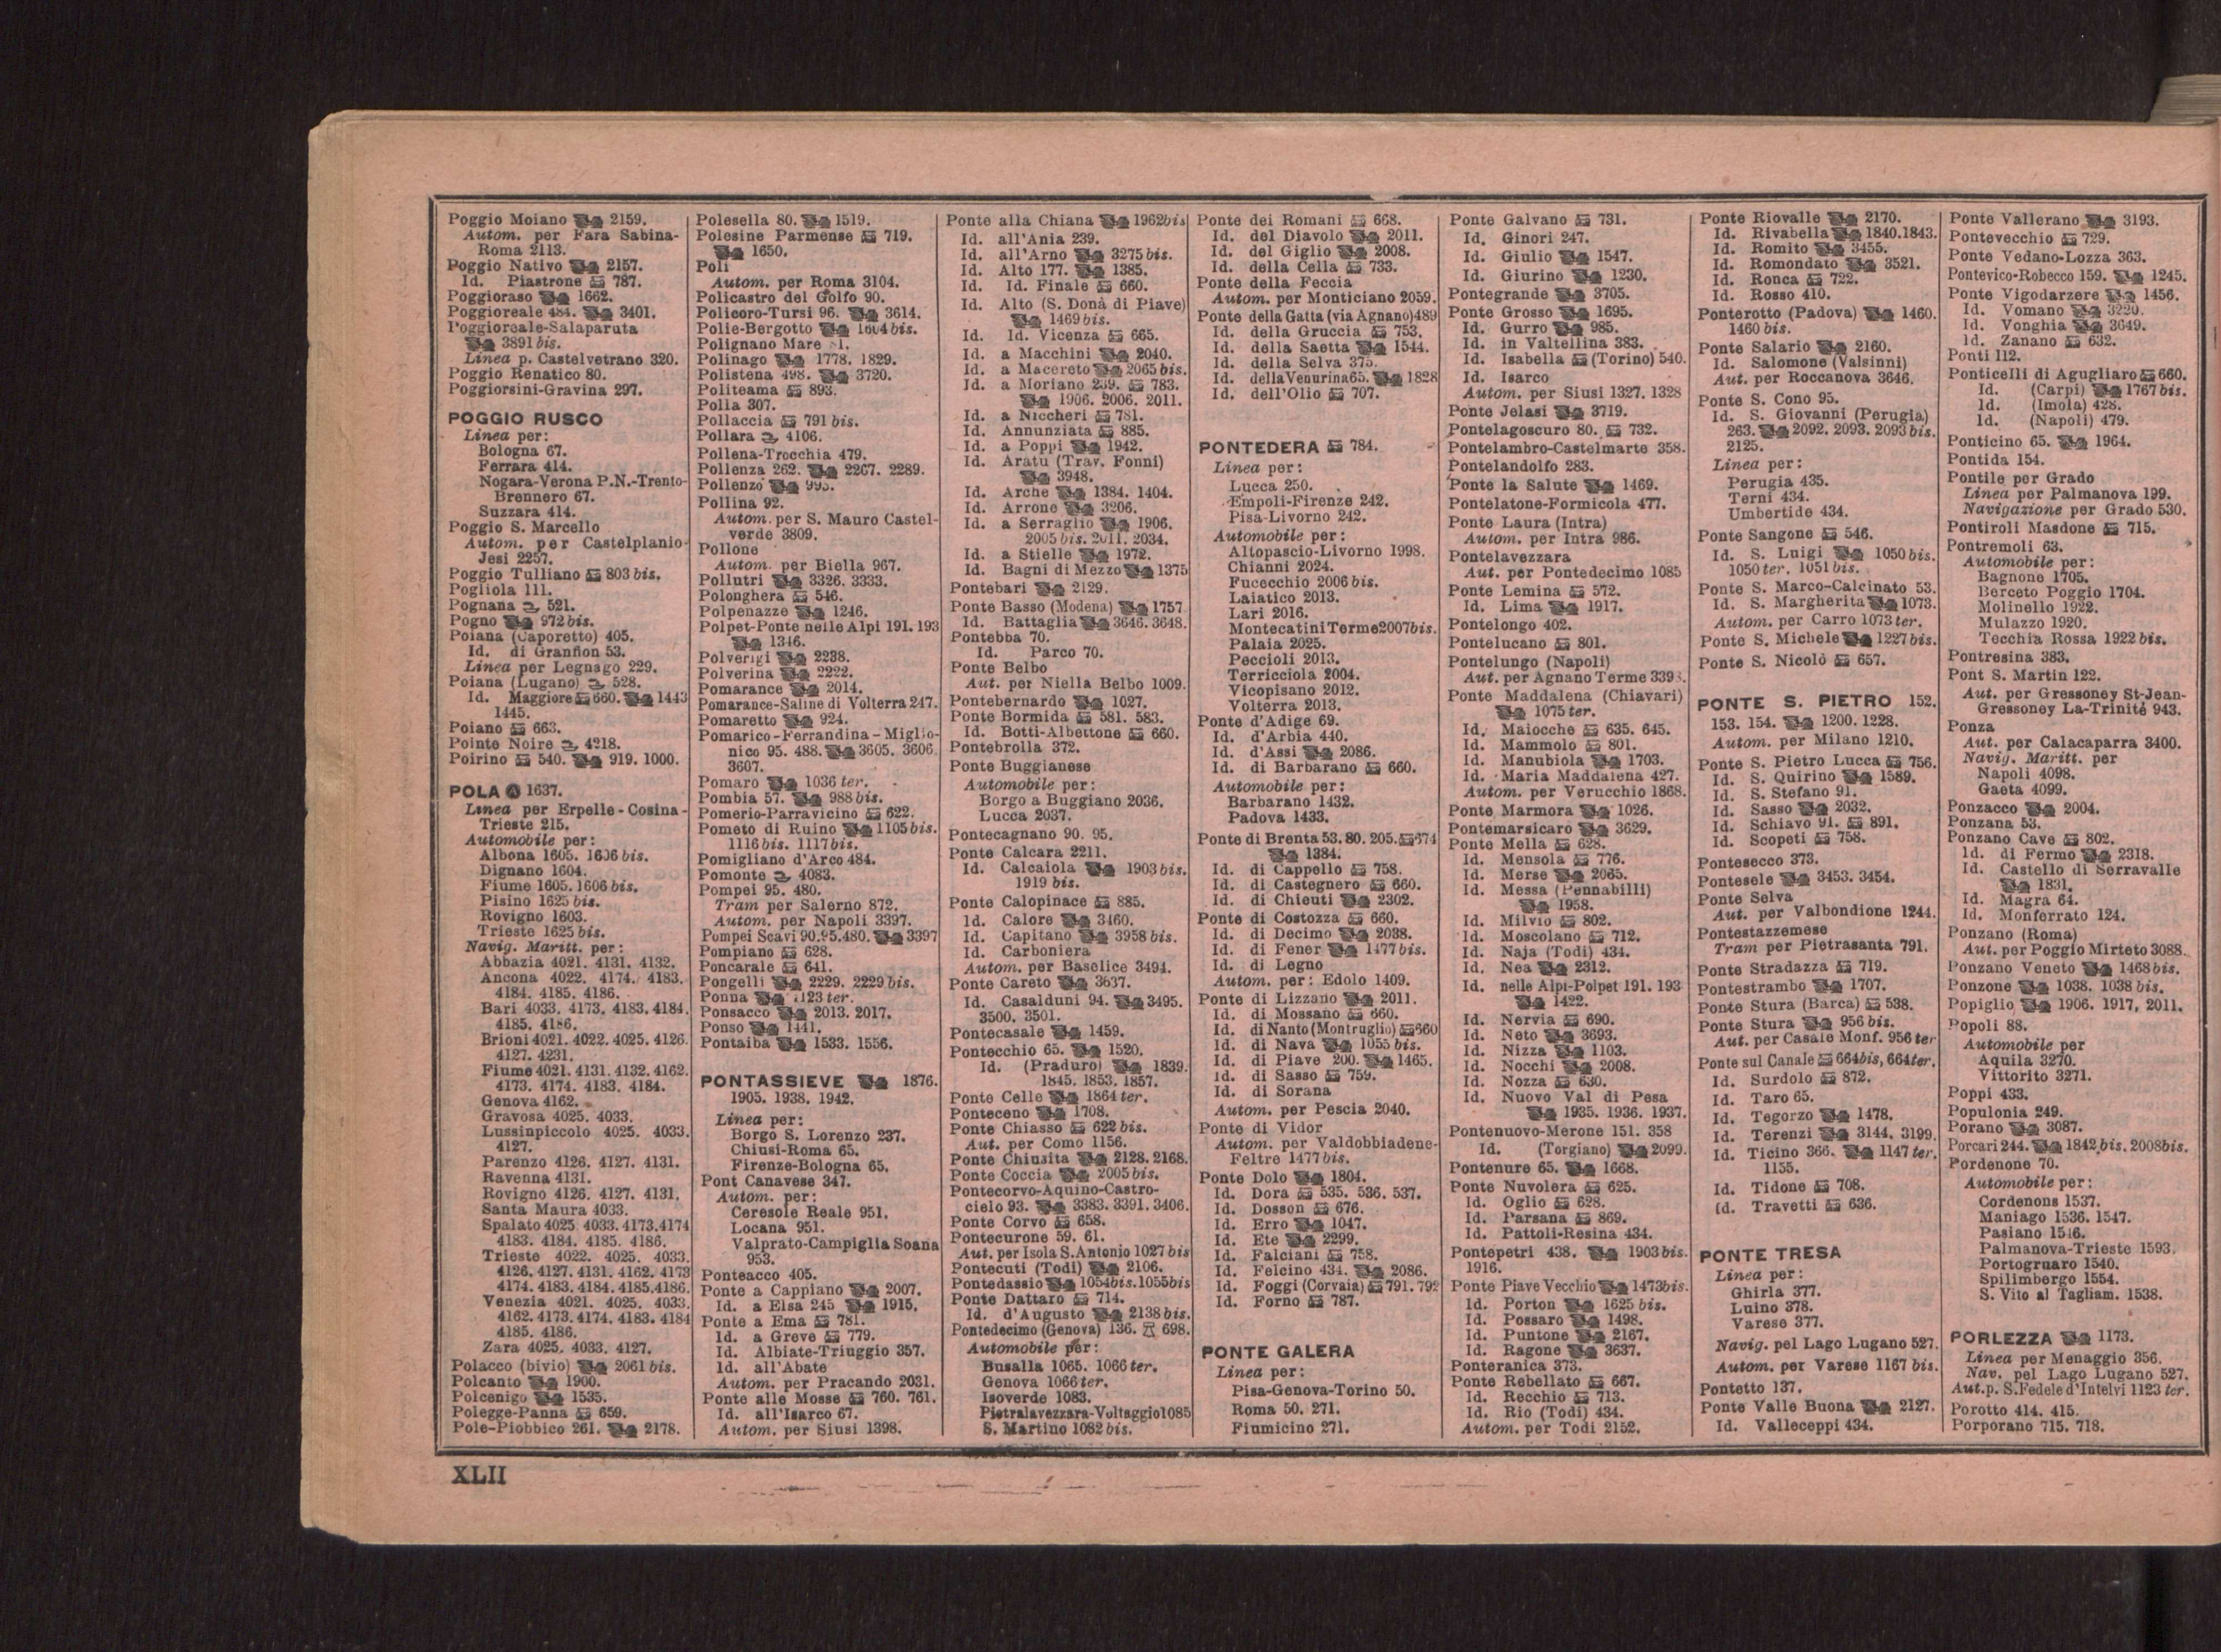 Poggio Moiano 2159.
Autom. per Fara Sabina-
Roma 2113.
Poggio Nativo 2157.
Id. Piastrone 787.
Poggioraso 1662.
Poggioreale 484. 3401.
Poggioreale-Salaparuta
3891 bis.
Linea p. Castelvetrano 320.
Poggio Renatico 80.
Poggiorsini-Gravina 297.
POGGIO RUSCO
Linea per:
Bologna 67.
Ferrara 414.
Nogara-Verona P.N.-Trento-
Brennero 67.
Suzzara 414.
Poggio S. Marcello
Autom. per Castelplanio-
Jesi 2257.
Poggio Tulliano 803 bis.
Pogliola 111.
Pognana 521.
Pogno 972 bis.
Poiana (Caporetto) 405.
Id. di Granfion 53.
Linea per Legnago 229.
Poiana (Lugano) 528.
Id. Maggiore 660. 1443
1445.
Poiano 663.
Pointe Noire 4218.
Poirino 540. 919. 1000.
POLA 1637.
Linea per Erpelle-Cosina-
Trieste 215.
Automobile per:
Albona 1605. 1606 bis.
Dignano 1604.
Fiume 1605. 1606 bis.
Pisino 1625 bis.
Rovigno 1603.
Trieste 1625 bis.
Navig. Maritt. per:
Abbazia 4021. 4131. 4132.
Ancona 4022. 4174. 4183.
4184. 4185. 4186.
Bari 4033. 4173. 4183. 4184.
4185. 4186.
Brioni 4021. 4022. 4025. 4126.
4127. 4231.
Fiume 4021. 4131. 4132. 4162.
4173. 4174. 4183. 4184.
Genova 4162.
Gravosa 4025. 4033.
Lussinpiccolo 4025. 4033.
4127.
Parenzo 4126. 4127. 4131.
Ravenna 4131.
Rovigno 4126. 4127. 4131.
Santa Maura 4033.
Spalato 4025. 4033. 4173. 4174
4183. 4184. 4185. 4186.
Trieste 4022. 4025. 4033.
4126. 4127. 4131. 4162. 4173
4174. 4183. 4184. 4185. 4186.
Venezia 4021. 4025. 4033.
4162. 4173. 4174. 4183. 4184
4185. 4186.
Zara 4025. 4033. 4127.
Polacco (bivio) 2061 bis.
Polcanto 1900.
Polcenigo 1535.
Polegge-Panna 659.
Pole-Piobbico 261. 2178.
Polesella 80. 1519.
Polesine Parmense 719.
1650.
Poli
Autom. per Roma 3104.
Policastro del Golfo 90.
Policoro-Tursi 96. 3614.
Polie-Bergotto 1604 bis.
Polignano Mare
Polinago 1778. 1829.
Polistena 498. 3720.
Politeama 893.
Polla 307.
Pollaccia 791 bis.
Pollara 4106.
Pollena-Trocchia 479.
Pollenza 262. 2267. 2289.
Pollenzo 995.
Pollina 92.
Autom. per S. Mauro Castel-
verde 3809.
Pollone
Autom. per Biella 967.
Pollutri 3326. 3333.
Polonghera 546.
Polpenazze 1246.
Polpet-Ponte nelle Alpi 191. 193
1346.
Polverigi 2238.
Polverina 2222.
Pomarance 2014.
Pomarance-Saline di Volterra 247.
Pomaretto 924.
Pomarico-Ferrandina-Miglio-
nico 95. 488. 3605. 3606.
3607.
Pomaro 1036 ter.
Pombia 57. 988 bis.
Pomerio-Parravicino 622.
Pometo di Ruino 1105 bis.
1116 bis. 1117 bis.
Pomigliano d'Arco 484.
Pomonte 4083.
Pompei 95. 480.
Tram per Salerno 872.
Autom. per Napoli 3397.
Pompei Scavi 90. 95. 480. 3397
Pompiano 628.
Poncarale 641.
Pongelli 2229. 2229 bis.
Ponna 1123 ter.
Ponsacco 2013. 2017.
Ponso 1441.
Pontaiba 1533. 1556.
PONTASSIEVE 1876.
1905. 1938. 1942.
Linea per:
Borgo S. Lorenzo 237.
Chiusi-Roma 65.
Firenze-Bologna 65.
Pont Canavese 347.
Autom. per:
Ceresole Reale 951.
Locana 951.
Valprato-Campiglia Soana
953.
Ponteacco 405.
Ponte a Cappiano 2007.
Id. a Elsa 245 1915.
Ponte a Ema 781.
Id. a Greve 779.
Id. Albiate-Triuggio 357.
Id. all'Abate
Autom. per Pracando 2031.
Ponte alle Mosse 760. 761.
Id. all'Isarco 67.
Autom. per Siusi 1398.
Ponte alla Chiana 1962 bis
Id. all'Ania 239.
Id. all'Arno 3275 bis.
Id. Alto 177. 1385.
Id. Id. Finale 660.
Id. Alto (S. Donà di Piave)
1469 bis.
Id. Id. Vicenza 665.
Id. a Macchini 2040.
Id. a Macereto 2065 bis.
Id. a Moriano 239. 783.
1906. 2006. 2011.
Id. a Niccheri 781.
Id. Annunziata 885.
Id. a Poppi 1942.
Id. Aratu (Trav. Fonni)
3948.
Id. Arche 1384. 1404.
Id. Arrone 3206.
Id. a Serraglio 1906.
2005 bis. 2011. 2034.
Id. a Stielle 1972.
Id. Bagni di Mezzo 1375
Pontebari 2129.
Ponte Basso (Modena) 1757
Id. Battaglia 3646. 3648.
Pontebba 70.
Id. Parco 70.
Ponte Belbo
Aut. per Niella Belbo 1009.
Pontebernardo 1027.
Ponte Bormida 581. 583.
Id. Botti-Albettone 660.
Pontebrolla 372.
Ponte Buggianese
Automobile per:
Borgo a Buggiano 2036.
Lucca 2037.
Pontecagnano 90. 95.
Ponte Calcara 2211.
Id. Calcaiola 1903 bis.
1919 bis.
Ponte Calopinace 885.
Id. Calore 3460.
Id. Capitano 3958 bis.
Id. Carboniera
Autom. per Baselice 3494.
Ponte Careto 3637.
Id. Casalduni 94. 3495.
3500. 3501.
Pontecasale 1459.
Pontecchio 65. 1520.
Id. (Praduro) 1839.
1845. 1853. 1857.
Ponte Celle 1864 ter.
Ponteceno 1708.
Ponte Chiasso 622 bis.
Aut. per Como 1156.
Ponte Chiusita 2128. 2168.
Ponte Coccia 2005 bis.
Pontecorvo-Aquino-Castro-
cielo 93. 3383. 3391. 3406.
Ponte Corvo 658.
Pontecurone 59. 61.
Aut. per Isola S. Antonio 1027 bis
Pontecuti (Todi) 2106.
Pontedassio 1054 bis. 1055 bis
Ponte Dattaro 714.
Id. d'Augusto 2138 bis.
Pontedecimo (Genova) 136. 698.
Automobile per:
Busalla 1065. 1066 ter.
Genova 1066 ter.
Isoverde 1083.
Pietralavezzara-Voltaggio 1085
S. Martino 1082 bis.
Ponte dei Romani 668.
Id. del Diavolo 2011.
Id. del Giglio 2008.
Id. della Cella 733.
Ponte della Feccia
Autom. per Monticiano 2059.
Ponte della Gatta (via Agnano) 489
Id. della Gruccia 753.
Id. della Saetta 1544.
Id. della Selva 375.
Id. della Venurina 65. 1828
Id. dell'Olio 707.
PONTEDERA 784.
Linea per:
Lucca 250.
Empoli-Firenze 242.
Pisa-Livorno 242.
Automobile per:
Altopascio-Livorno 1998.
Chianni 2024.
Fucecchio 2006 bis.
Laiatico 2013.
Lari 2016.
Montecatini Terme 2007 bis.
Palaia 2025.
Peccioli 2013.
Terricciola 2004.
Vicopisano 2012.
Volterra 2013.
Ponte d'Adige 69.
Id. d'Arbia 440.
Id. d'Assi 2086.
Id. di Barbarano 660.
Automobile per:
Barbarano 1432.
Padova 1433.
Ponte di Brenta 53. 80. 205. 674
1384.
Id. di Cappello 758.
Id. di Castegnero 660.
Id. di Chieuti 2302.
Ponte di Costozza 660.
Id. di Decimo 2038.
Id. di Fener 1477 bis.
Id. di Legno
Autom. per: Edolo 1409.
Ponte di Lizzano 2011.
Id. di Mossano 660.
Id. di Nanto (Montruglio) 660
Id. di Nava 1055 bis.
Id. di Piave 200. 1465.
Id. di Sasso 759.
Id. di Sorana
Autom. per Pescia 2040.
Ponte di Vidor
Autom. per Valdobbiadene-
Feltre 1477 bis.
Ponte Dolo 1804.
Id. Dora 535. 536. 537.
Id. Dosson 676.
Id. Erro 1047.
Id. Ete 2299.
Id. Falciani 758.
Id. Felcino 434. 2086.
Id. Foggi (Corvaia) 791. 792
Id. Forno 787.
PONTE GALERA
Linea per:
Pisa-Genova-Torino 50.
Roma 50. 271.
Fiumicino 271.
Ponte Galvano 731.
Id. Ginori 247.
Id. Giulio 1547.
Id. Giurino 1230.
Pontegrande 3705.
Ponte Grosso 1695.
Id. Gurro 985.
Id. in Valtellina 383.
Id. Isabella (Torino) 540.
Id. Isarco
Autom. per Siusi 1327. 1328
Ponte Jelasi 3719.
Pontelagoscuro 80. 732.
Pontelambro-Castelmarte 358.
Pontelandolfo 283.
Ponte la Salute 1469.
Pontelatone-Formicola 477.
Ponte Laura (Intra)
Autom. per Intra 986.
Pontelavezzara
Aut. per Pontedecimo 1085
Ponte Lemina 572.
Id. Lima 1917.
Pontelongo 402.
Pontelucano 801.
Pontelungo (Napoli)
Aut. per Agnano Terme 3393.
Ponte Maddalena (Chiavari)
1075 ter.
Id. Maiocche 635. 645.
Id. Mammolo 801.
Id. Manubiola 1703.
Id. Maria Maddalena 427.
Autom. per Verucchio 1868.
Ponte Marmora 1026.
Pontemarsicaro 3629.
Ponte Mella 628.
Id. Mensola 776.
Id. Merse 2065.
Id. Messa (Pennabilli)
1958.
Id. Milvio 802.
Id. Moscolano 712.
Id. Naja (Todi) 434.
Id. Nea 2312.
Id. nelle Alpi-Polpet 191. 193
1422.
Id. Nervia 690.
Id. Neto 3693.
Id. Nizza 1103.
Id. Nocchi 2008.
Id. Nozza 630.
Id. Nuovo Val di Pesa
1935. 1936. 1937.
Pontenuovo-Merone 151. 358
Id. (Torgiano) 2099.
Pontenure 65. 1668.
Ponte Nuvolera 625.
Id. Oglio 628.
Id. Parsana 869.
Id. Pattoli-Resina 434.
Pontepetri 438. 1903 bis.
1916.
Ponte Piave Vecchio 1473 bis.
Id. Porton 1625 bis.
Id. Possaro 1498.
Id. Puntone 2167.
Id. Ragone 3637.
Ponteranica 373.
Ponte Rebellato 667.
Id. Recchio 713.
Id. Rio (Todi) 434.
Autom. per Todi 2152.
Ponte Riovalle 2170.
Id. Rivabella 1840. 1843.
Id. Romito 3455.
Id. Romondato 3521.
Id. Ronca 722.
Id. Rosso 410.
Ponterotto (Padova) 1460.
1460 bis.
Ponte Salario 2160.
Id. Salomone (Valsinni)
Aut. per Roccanova 3646.
Ponte S. Cono 95.
Id. S. Giovanni (Perugia)
263. 2092. 2093. 2093 bis.
2125.
Linea per:
Perugia 435.
Terni 434.
Umbertide 434.
Ponte Sangone 546.
Id. S. Luigi 1050 bis.
1050 ter. 1051 bis.
Ponte S. Marco-Calcinato 53.
Id. S. Margherita 1073.
Autom. per Carro 1073 ter.
Ponte S. Michele 1227 bis.
Ponte S. Nicolò 657.
PONTE S. PIETRO 152.
153. 154. 1200. 1228.
Autom. per Milano 1210.
Ponte S. Pietro Lucca 756.
Id. S. Quirino 1589.
Id. S. Stefano 91.
Id. Sasso 2032.
Id. Schiavo 91. 891.
Id. Scopeti 758.
Pontesecco 373.
Pontesele 3453. 3454.
Ponte Selva
Aut. per Valbondione 1244.
Pontestazzemese
Tram per Pietrasanta 791.
Ponte Stradazza 719.
Pontestrambo 1707.
Ponte Stura (Barca) 538.
Ponte Stura 956 bis.
Aut. per Casale Monf. 956 ter
Ponte sul Canale 664 bis, 664 ter.
Id. Surdolo 872.
Id. Taro 65.
Id. Tegorzo 1478.
Id. Terenzi 3144. 3199.
Id. Ticino 366. 1147 ter.
1155.
Id. Tidone 708.
Id. Travetti 636.
PONTE TRESA
Linea per:
Ghirla 377.
Luino 378.
Varese 377.
Navig. pel Lago Lugano 527.
Autom. per Varese 1167 bis.
Pontetto 137.
Ponte Valle Buona 2127.
Id. Valleceppi 434.
Ponte Vallerano 3193.
Pontevecchio 729.
Ponte Vedano-Lozza 363.
Pontevico-Robecco 159. 1245.
Ponte Vigodarzere 1456.
Id. Vomano 3220.
Id. Vonghia 3649.
Id. Zanano 632.
Ponti 112.
Ponticelli di Agugliaro 660.
Id. (Carpi) 1767 bis.
Id. (Imola) 428.
Id. (Napoli) 479.
Ponticino 65. 1964.
Pontida 154.
Pontile per Grado
Linea per Palmanova 199.
Navigazione per Grado 530.
Pontiroli Masdone 715.
Pontremoli 63.
Automobile per:
Bagnone 1705.
Berceto Poggio 1704.
Molinello 1922.
Mulazzo 1920.
Tecchia Rossa 1922 bis.
Pontresina 383.
Pont S. Martin 122.
Aut. per Gressoney St-Jean-
Gressoney La-Trinité 943.
Ponza
Aut. per Calacaparra 3400.
Navig. Maritt. per
Napoli 4098.
Gaeta 4099.
Ponzacco 2004.
Ponzana 53.
Ponzano Cave 802.
Id. di Fermo 2318.
Id. Castello di Serravalle
1831.
Id. Magra 64.
Id. Monferrato 124.
Ponzano (Roma)
Aut. per Poggio Mirteto 3088.
Ponzano Veneto 1468 bis.
Ponzone 1038. 1038 bis.
Popiglio 1906. 1917. 2011.
Popoli 88.
Automobile per
Aquila 3270.
Vittorito 3271.
Poppi 433.
Populonia 249.
Porano 3087.
Porcari 244. 1842 bis. 2008 bis.
Pordenone 70.
Automobile per:
Cordenons 1537.
Maniago 1536. 1547.
Pasiano 1546.
Palmanova-Trieste 1593.
Portogruaro 1540.
Spilimbergo 1554.
S. Vito al Tagliam. 1538.
PORLEZZA 1173.
Linea per Menaggio 356.
Nav. pel Lago Lugano 527.
Aut. p. S. Fedele d'Intelvi 1123 ter.
Porotto 414. 415.
Porporano 715. 718.
XLII